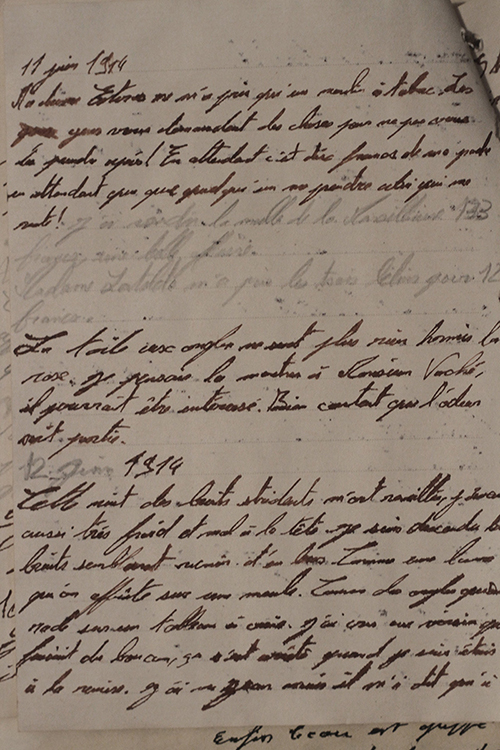 11 juin 1914
Madame ne m'a pris qu'un moulin à tabac. Les
gens vous demandent des choses pour ne pas vous
les prendre après! En attendant c'est dix francs de ma poche
en attendant que quelqu'un me prendre celui qui me
reste! J'ai vendu la malle de la Marseillaise 133
francs, une belle affaire.
Madame m'a pris les trois pour 12
francs.
La toile aux ongles ne sent plus rien hormis la
rose. Je pensais la montrer à Monsieur Vaché,
il pourrait être interessé. Bien content que l'odeur
soit partie.
12 Juin 1914
Cette nuit des bruits stridents m'ont réveillés, j'avais
aussi très froid et mal à la tête. Je suis descendu les
bruits semblaient venir d'en bas. Comme une lame
qu'on affûte sur une meule. Comme des ongles qu'on
racle sur un tableau à craie. J'ai cru aux voisins qui
faisait du boucan, ça s'est arrêté quand je suis
à la remise. J'ai vu Jean mais il m'a dit qu'il
Enfin est